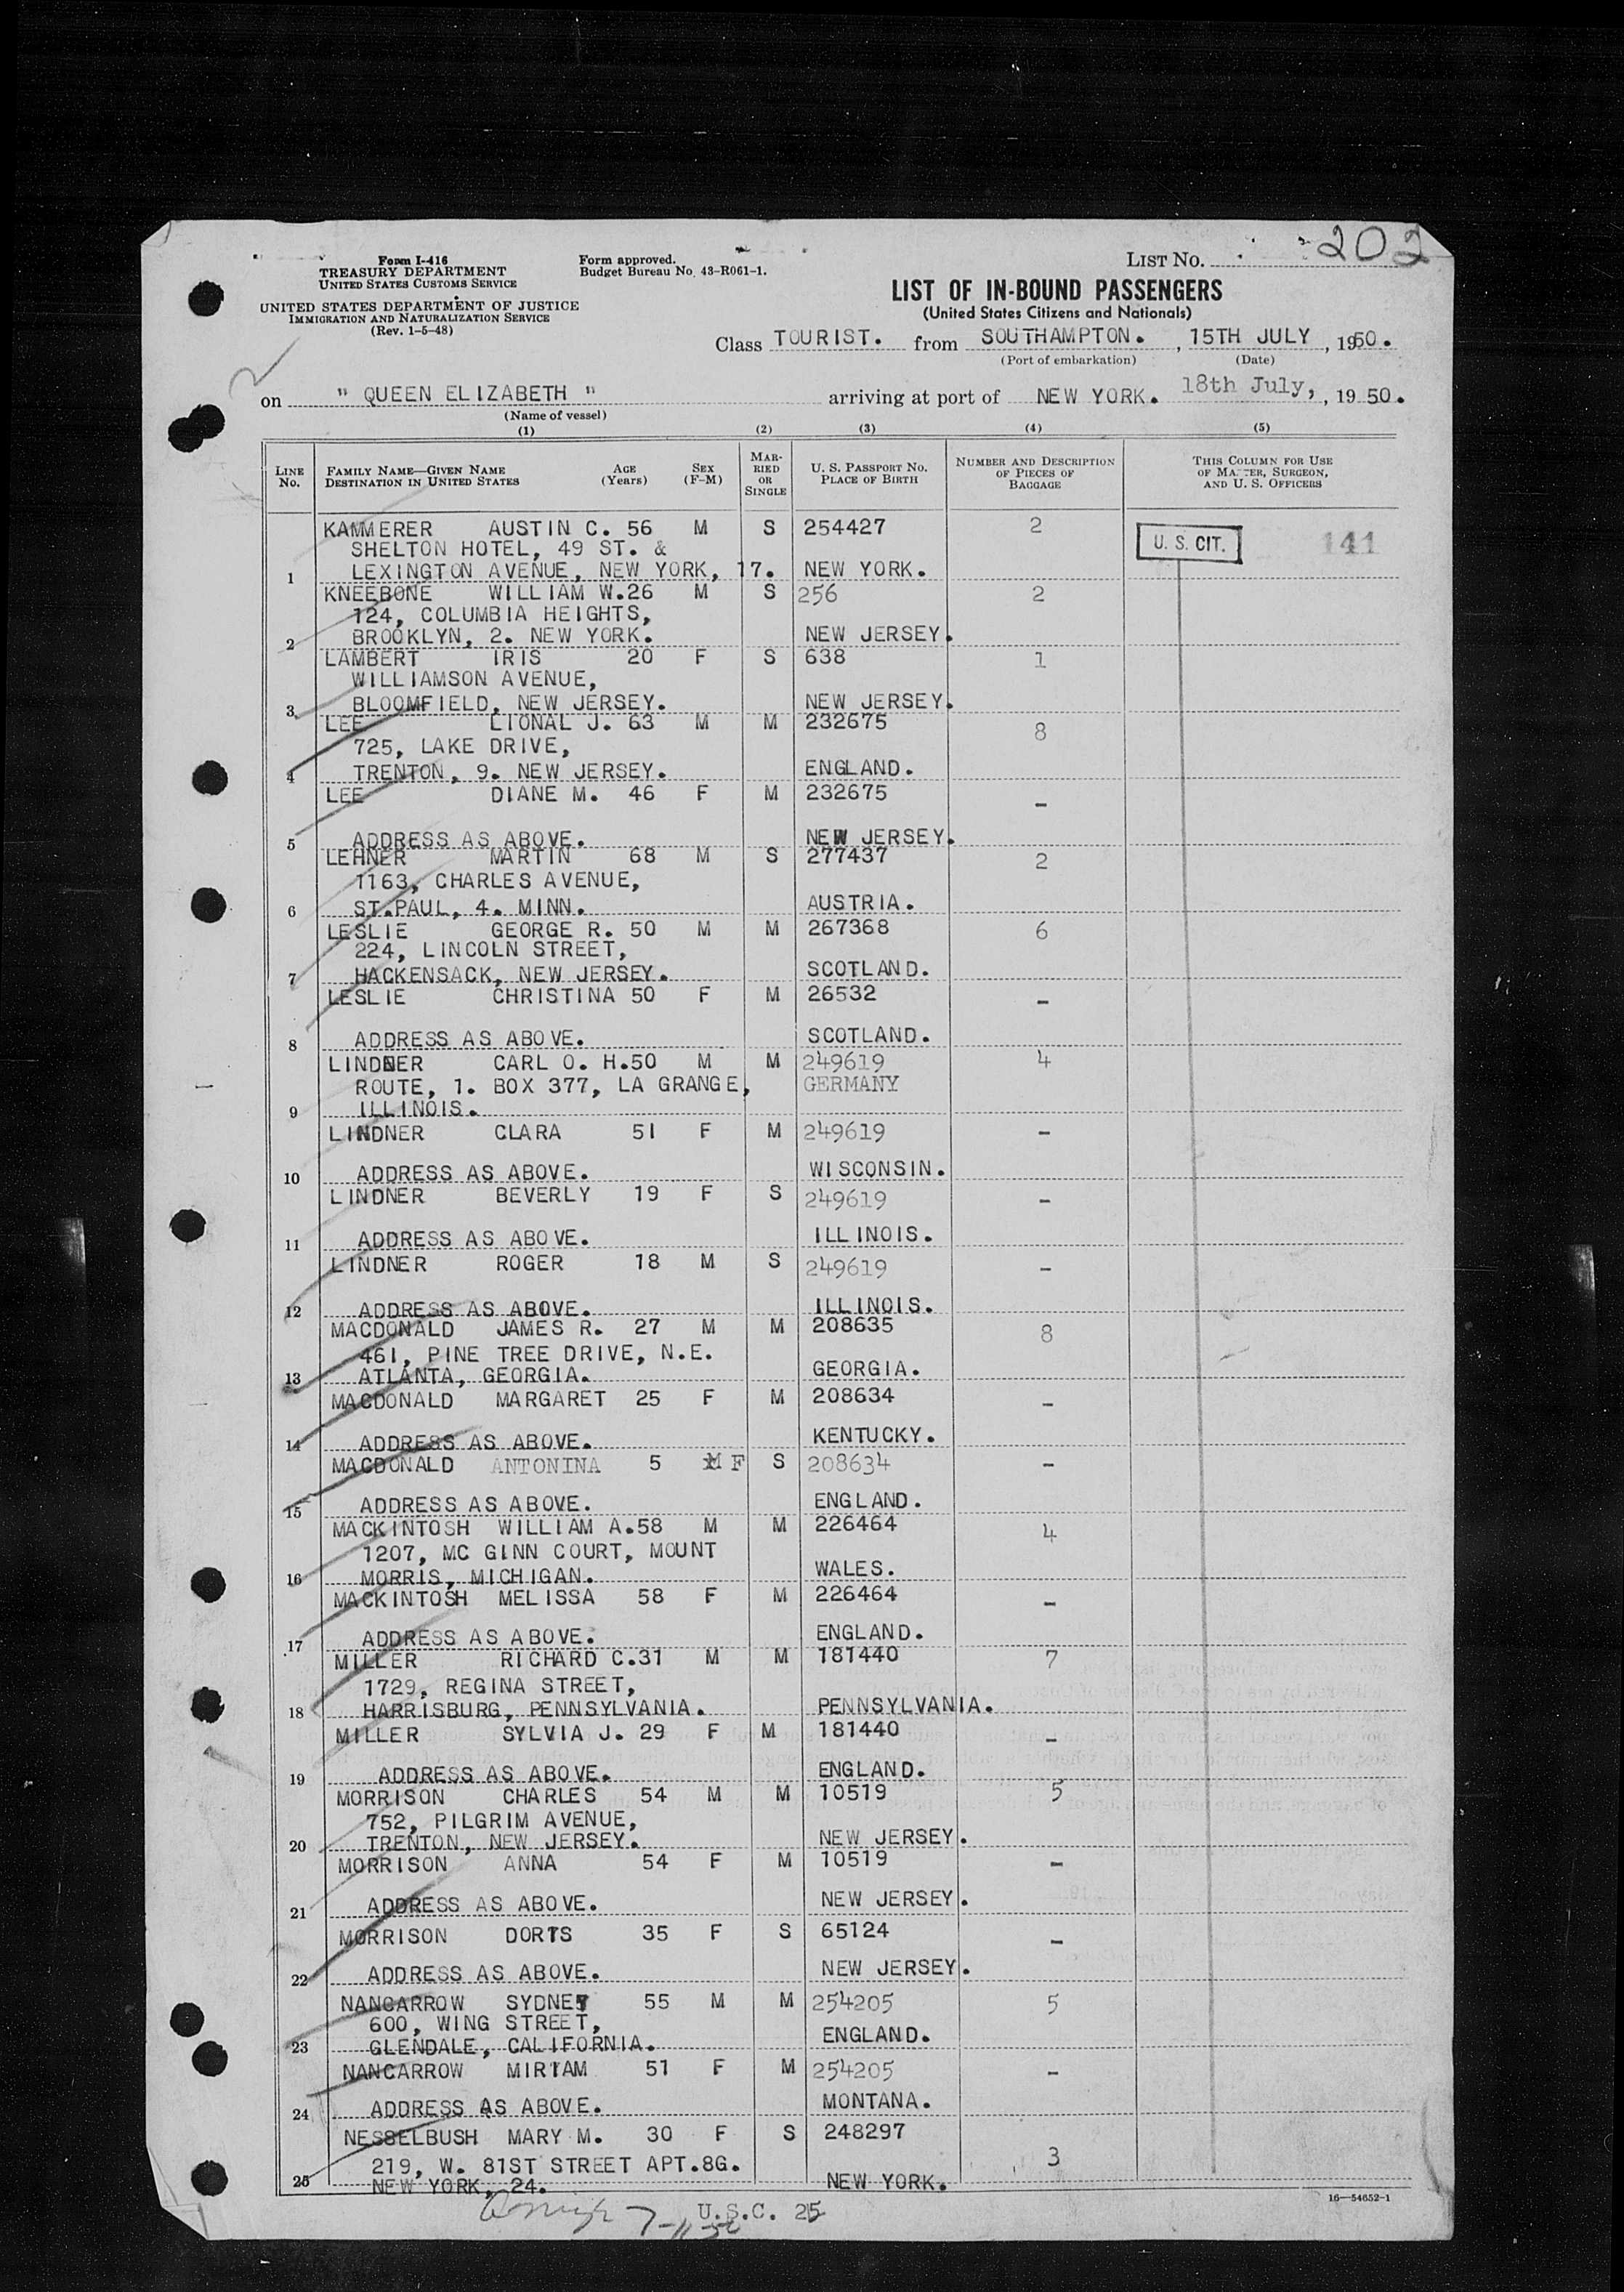 202
Form I-416
TREASURY DEPARTMENT
UNITED STATES CUSTOMS SERVICE
UNITED STATES DEPARTMENT OF JUSTICE
IMMIGRATION AND NATURALIZATION SERVICE
(Rev. 1-5-48)
Form approved.
Budget Bureau No. 43-R061-1.
LIST NO.
LIST OF IN-BOUND PASSENGERS
(United States Citizens and Nationals)
Class TOURIST. from SOUTHAMPTON. , 15TH JULY , 1950.
(Port of embarkation) (Date)
on " QUEEN ELIZABETH " arriving at port of NEW YORK. 18th July, , 1950.
(Name of vessel)
(1) (2) (3) (4) (5)
LINE No. FAMILY NAME—GIVEN NAME DESTINATION IN UNITED STATES AGE (Years) SEX (F-M) MARRIED OR SINGLE U. S. PASSPORT NO. PLACE OF BIRTH NUMBER AND DESCRIPTION OF PIECES OF BAGGAGE THIS COLUMN FOR USE OF MASTER, SURGEON, AND U. S. OFFICERS
KAMMERER AUSTIN C. 56 M S 254427 2
SHELTON HOTEL, 49 ST. & U. S. CIT. 141
1 LEXINGTON AVENUE, NEW YORK, 17. NEW YORK.
KNEEBONE WILLIAM W. 26 M S 256 2
124, COLUMBIA HEIGHTS,
2 BROOKLYN, 2. NEW YORK. NEW JERSEY.
LAMBERT IRIS 20 F S 638 1
WILLIAMSON AVENUE,
3 BLOOMFIELD, NEW JERSEY. NEW JERSEY.
LEE LIONAL J. 63 M M 232675 8
725, LAKE DRIVE,
4 TRENTON, 9. NEW JERSEY. ENGLAND.
LEE DIANE M. 46 F M 232675 -
5 ADDRESS AS ABOVE. NEW JERSEY.
LEHNER MARTIN 68 M S 277437 2
1163, CHARLES AVENUE,
6 ST.PAUL, 4. MINN. AUSTRIA.
LESLIE GEORGE R. 50 M M 267368 6
224, LINCOLN STREET,
7 HACKENSACK, NEW JERSEY. SCOTLAND.
LESLIE CHRISTINA 50 F M 26532 -
8 ADDRESS AS ABOVE. SCOTLAND.
LINDNER CARL O. H. 50 M M 249619 4
ROUTE, 1. BOX 377, LA GRANGE, GERMANY
9 ILLINOIS.
LINDNER CLARA 51 F M 249619 -
10 ADDRESS AS ABOVE. WISCONSIN.
LINDNER BEVERLY 19 F S 249619 -
11 ADDRESS AS ABOVE. ILLINOIS.
LINDNER ROGER 18 M S 249619 -
12 ADDRESS AS ABOVE. ILLINOIS.
MACDONALD JAMES R. 27 M M 208635 8
461, PINE TREE DRIVE, N.E.
13 ATLANTA, GEORGIA. GEORGIA.
MACDONALD MARGARET 25 F M 208634 -
14 ADDRESS AS ABOVE. KENTUCKY.
MACDONALD ANTONINA 5 F S 208634 -
15 ADDRESS AS ABOVE. ENGLAND.
MACKINTOSH WILLIAM A. 58 M M 226464 4
1207, MC GINN COURT, MOUNT
16 MORRIS, MICHIGAN. WALES.
MACKINTOSH MELISSA 58 F M 226464 -
17 ADDRESS AS ABOVE. ENGLAND.
MILLER RICHARD C. 31 M M 181440 7
1729, REGINA STREET,
18 HARRISBURG, PENNSYLVANIA. PENNSYLVANIA.
MILLER SYLVIA J. 29 F M 181440 -
19 ADDRESS AS ABOVE. ENGLAND.
MORRISON CHARLES 54 M M 10519 5
752, PILGRIM AVENUE,
20 TRENTON, NEW JERSEY. NEW JERSEY.
MORRISON ANNA 54 F M 10519 -
21 ADDRESS AS ABOVE. NEW JERSEY.
MORRISON DORIS 35 F S 65124 -
22 ADDRESS AS ABOVE. NEW JERSEY.
NANCARROW SYDNEY 55 M M 254205 5
600, WING STREET,
23 GLENDALE, CALIFORNIA. ENGLAND.
NANCARROW MIRIAM 51 F M 254205 -
24 ADDRESS AS ABOVE. MONTANA.
NESSELBUSH MARY M. 30 F S 248297
219, W. 81ST STREET APT.8G. 3
25 NEW YORK, 24. NEW YORK.
U.S.C. 25
16—54652-1